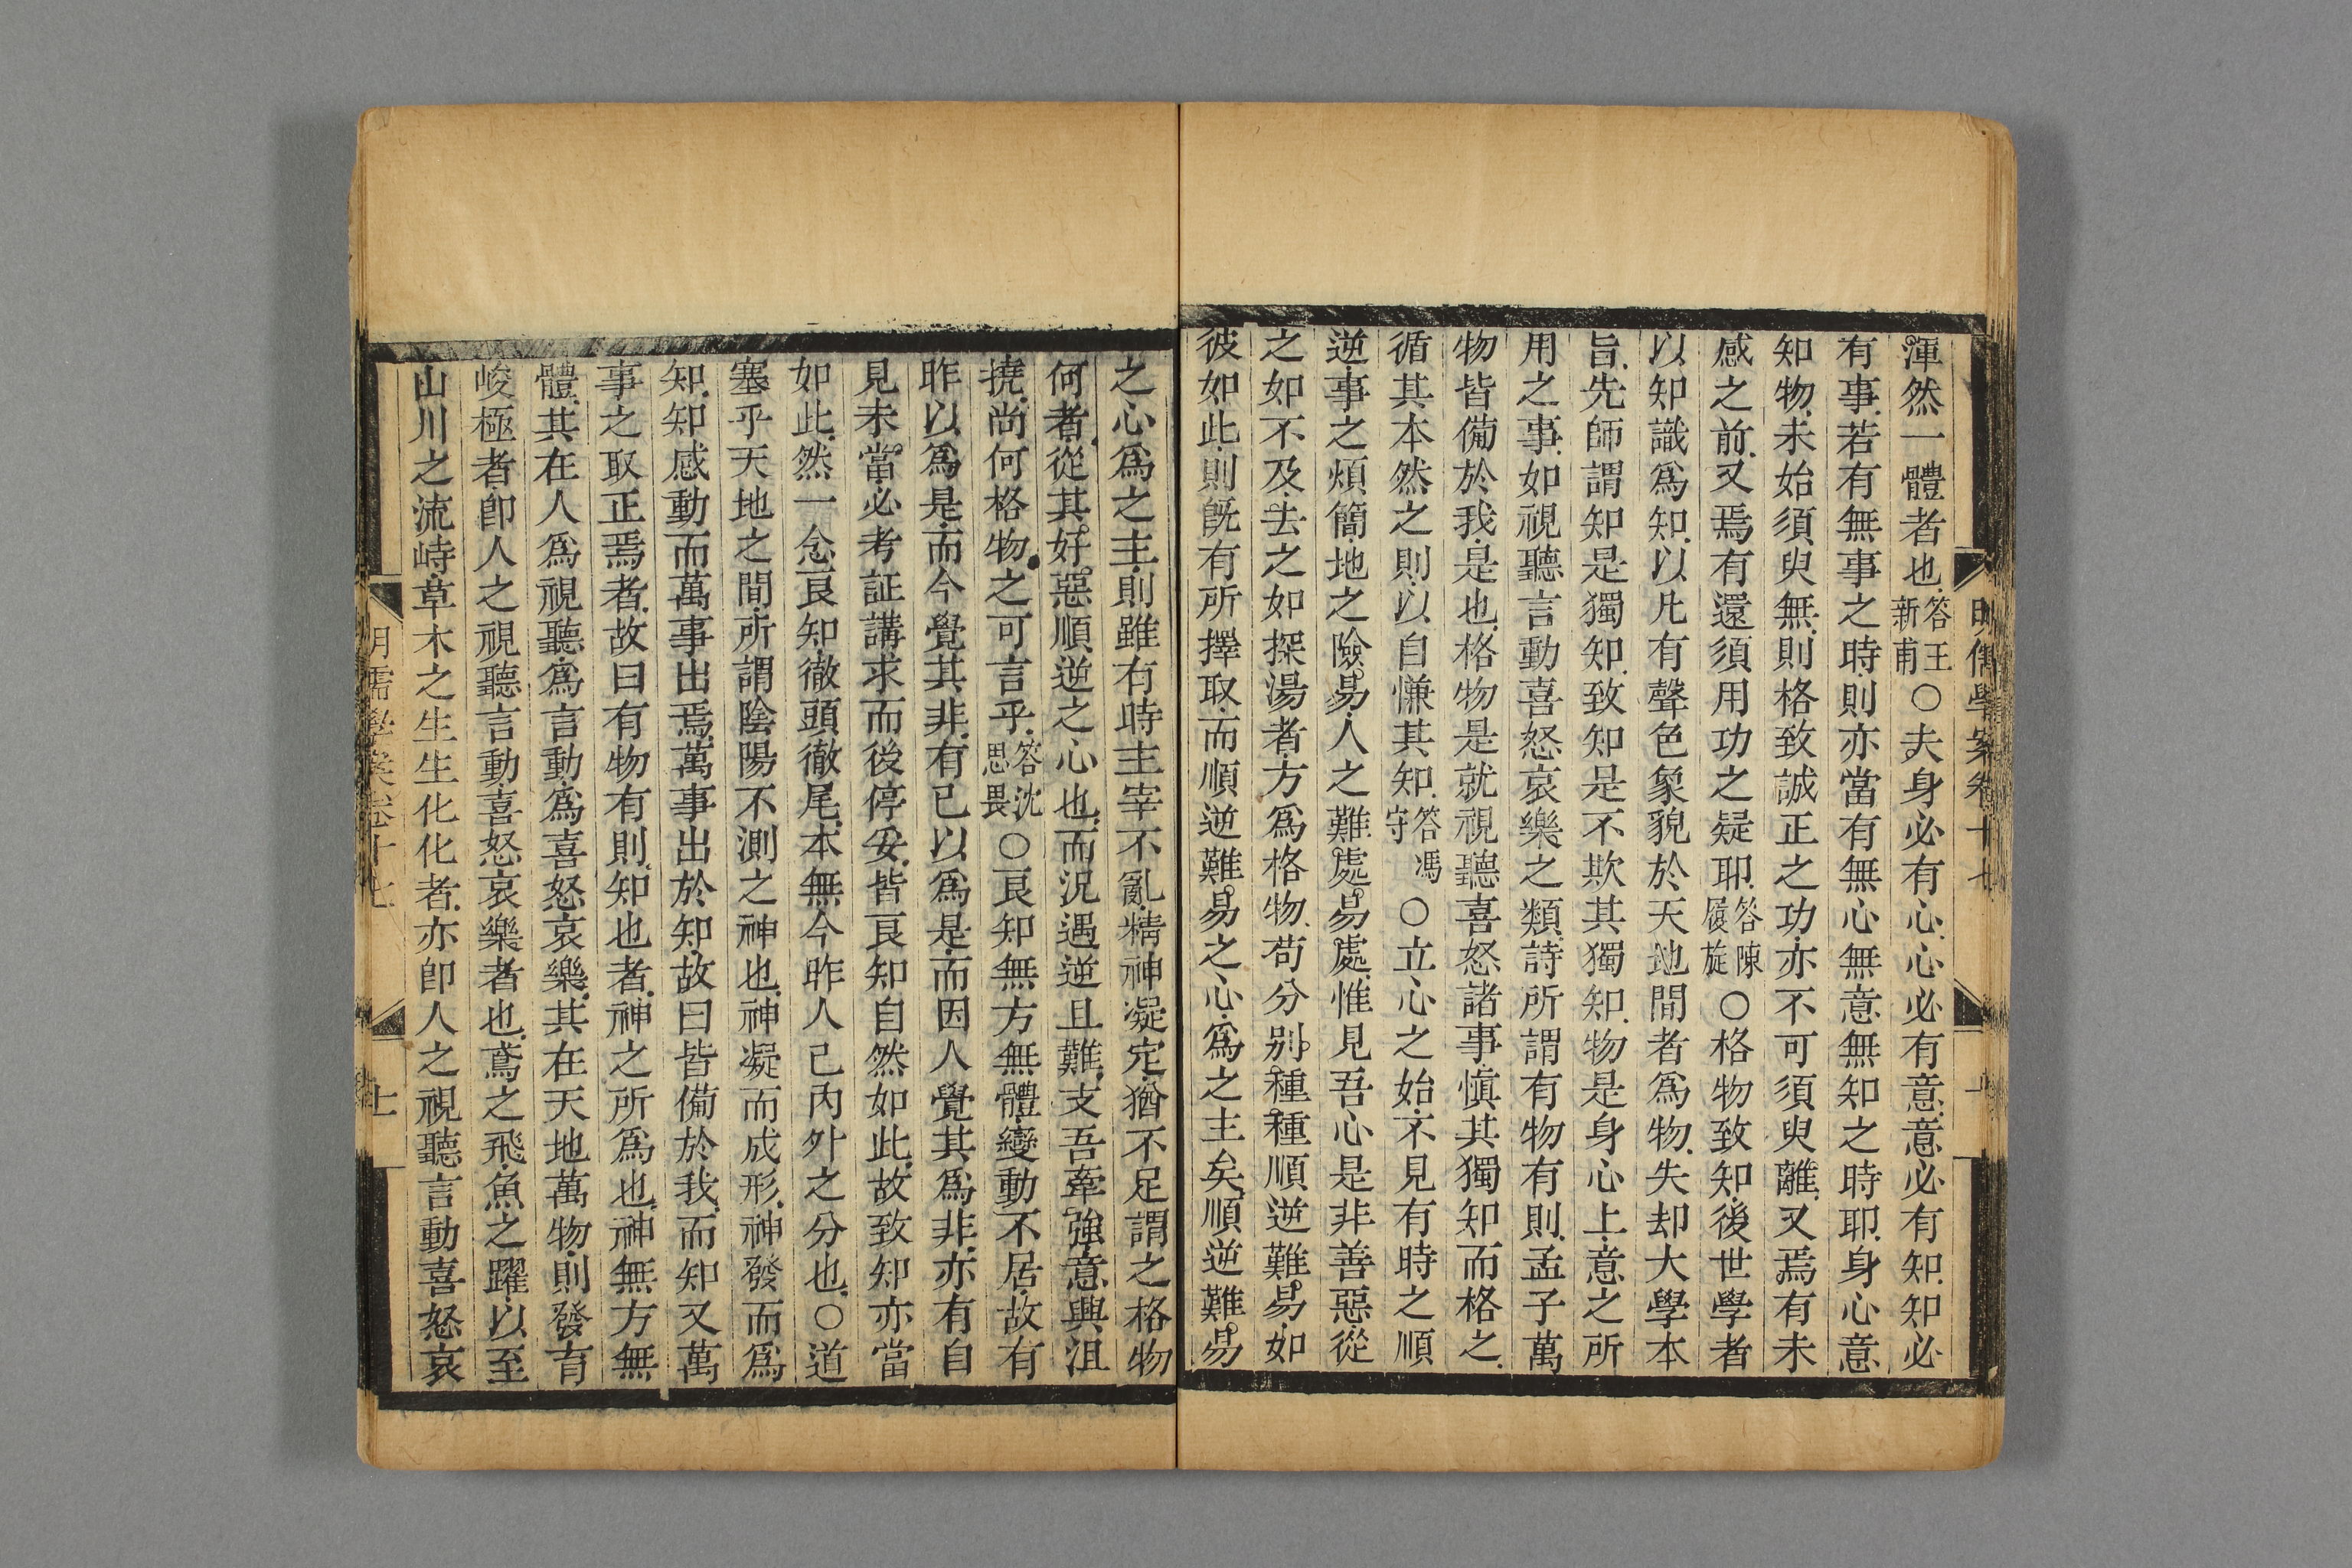 明儒學案卷十七
渾然一體者也答王新甫○夫身必有心心必有意意必有知知必
有事若有無事之時則亦當有無心無意無知之時耶身心意
知物未始須臾無則格致誠正之功亦不可須臾離又焉有未
感之前又焉有還須用功之疑耶答陳履旋○格物致知後世學者
以知識爲知以凡有聲色象貌於天地間者爲物失却大學本
旨先師謂知是獨知致知是不欺其獨知物是身心上意之所
用之事如視聽言動喜怒哀樂之類詩所謂有物有則孟子萬
物皆備於我是也格物是就視聽喜怒諸事慎其獨知而格之
循其本然之則以自慊其知答馮守○立心之始不見有時之順
逆事之煩簡地之險易人之難處易處惟見吾心是非善惡從
之如不及去之如探湯者方爲格物苟分别種種順逆難易如
彼如此則旣有所擇取而順逆難易之心爲之主矣順逆難易
之心爲之主則雖有時主宰不亂精神凝定猶不足謂之格物
何者從其好惡順逆之心也而況遇逆且難支吾牽強意興沮
撓尚何格物之可言乎答沈思畏○良知無方無體變動不居故有
昨以爲是而今覺其非有已以爲是而因人覺其爲非亦有自
見未當必考証講求而後停妥皆良知自然如此故致知亦當
如此然一念良知徹頭徹尾本無今昨人已内外之分也○道
塞乎天地之間所謂陰陽不測之神也神凝而成形神發而爲
知知感動而萬事出焉萬事出於知故曰皆備於我而知又萬
事之取正焉者故曰有物有則知也者神之所爲也神無方無
體其在人爲視聽爲言動爲喜怒哀樂其在天地萬物則發育
峻極者卽人之視聽言動喜怒哀樂者也鳶之飛魚之躍以至
山川之流峙草木之生生化化者亦卽人之視聽言動喜怒哀
明儒學案卷十七
七